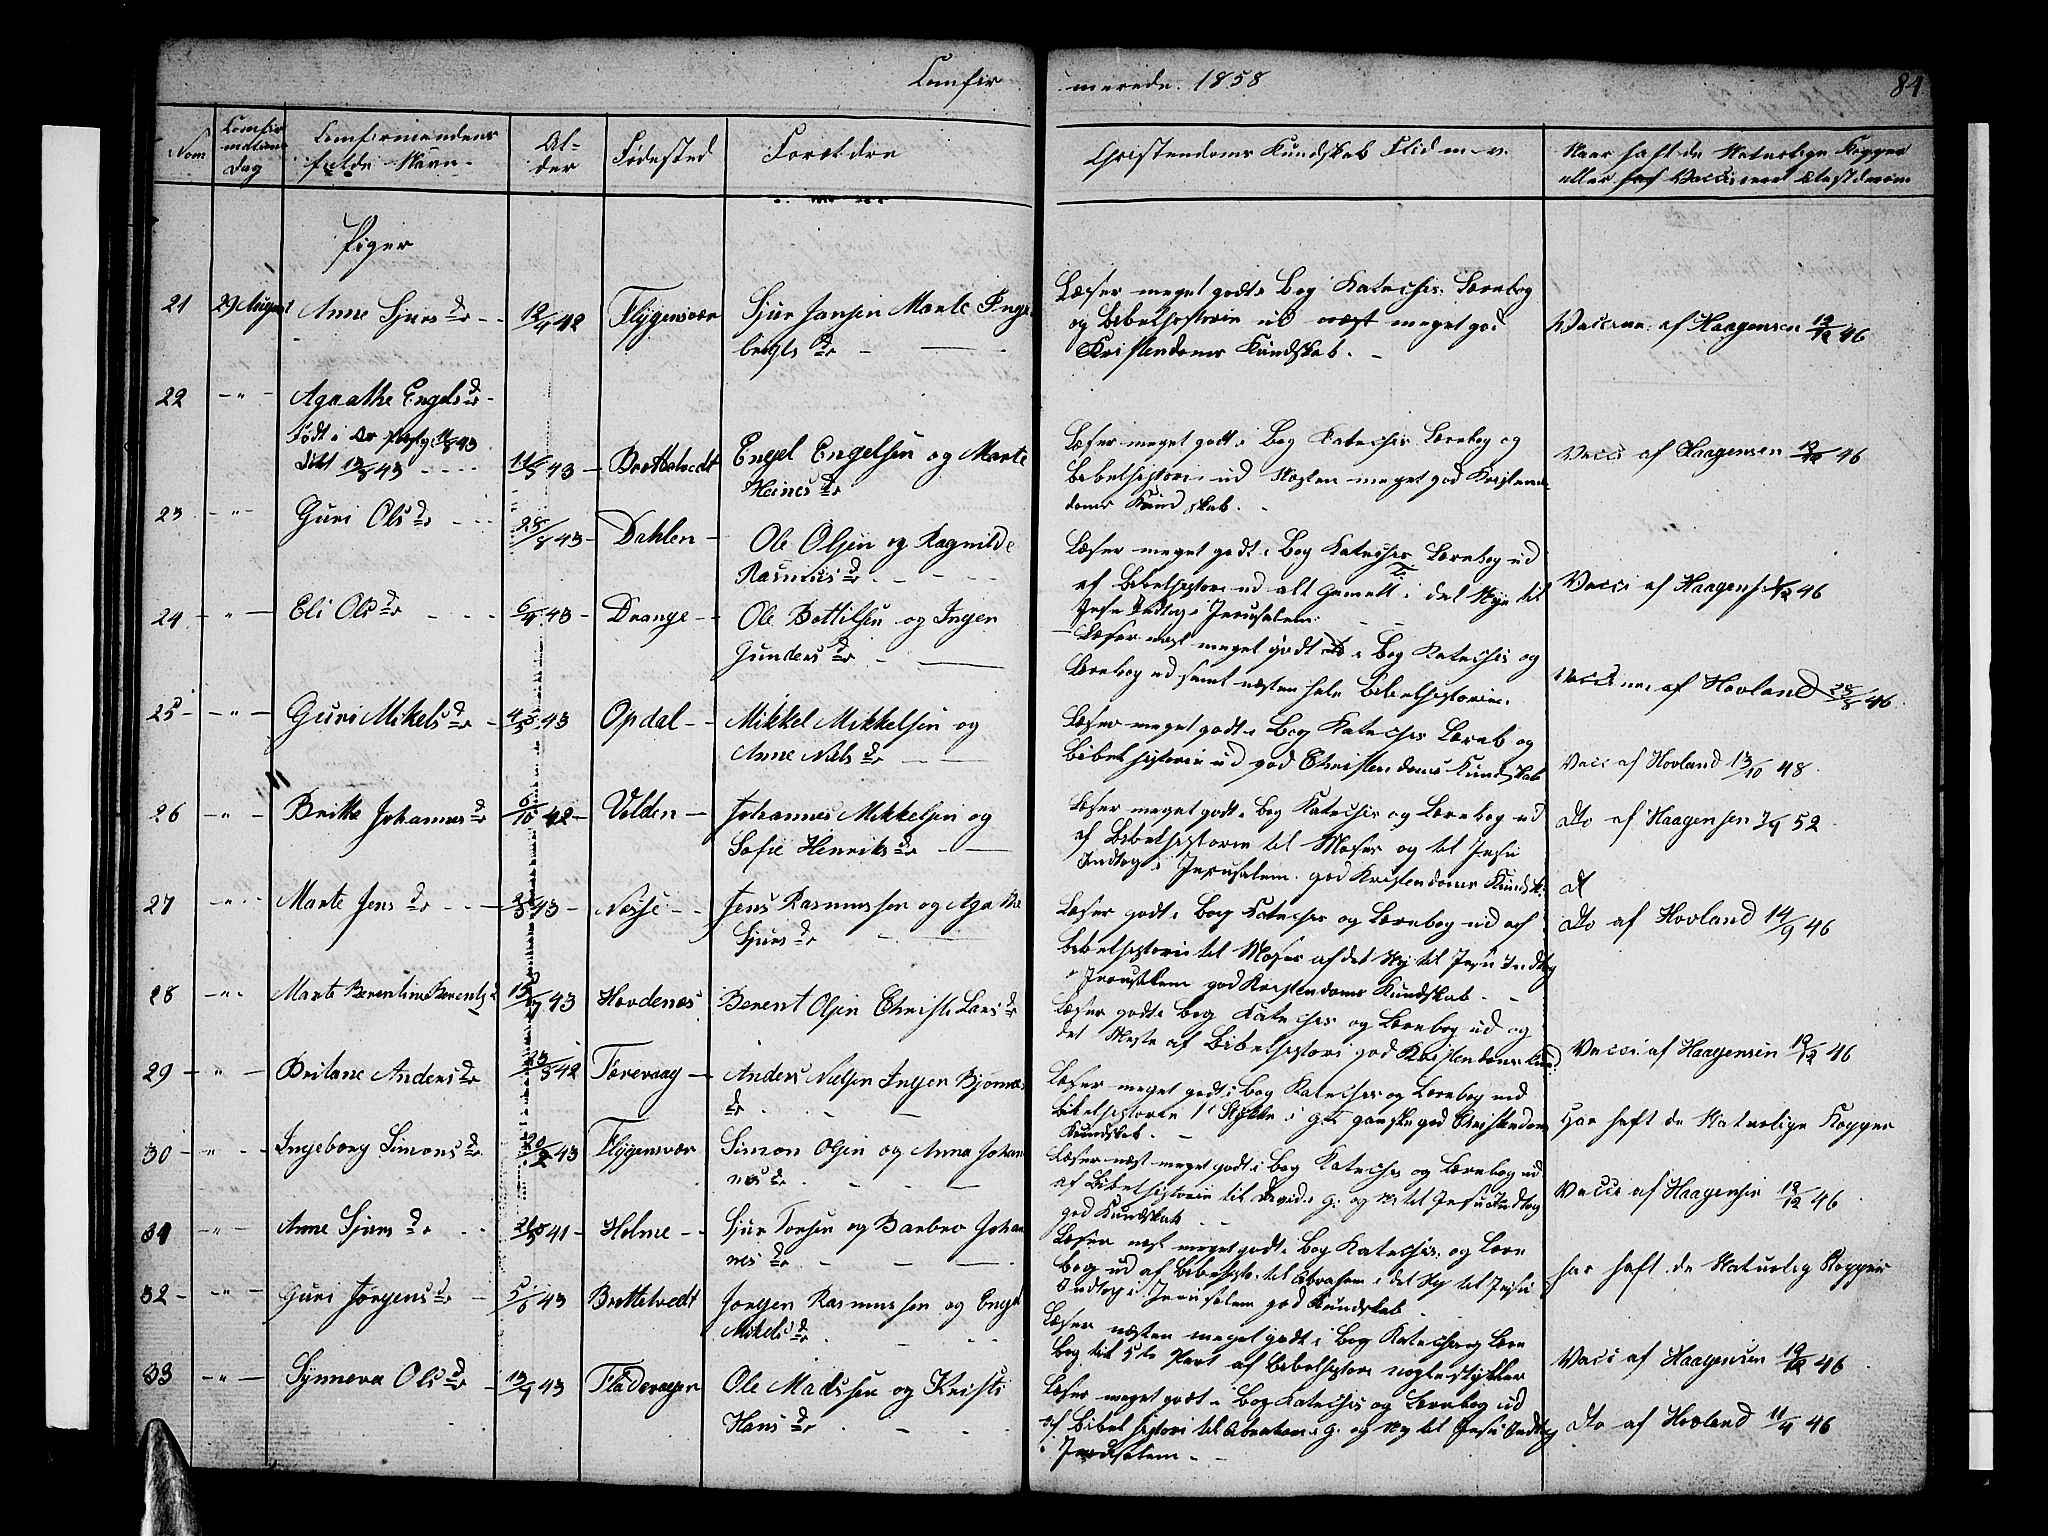 Confir
merede. 1858
84
Nom
Confir
mations
Dag
Confirmandens
fulde Navn.
Al-
der
Fødested
Forældre
Christendoms Kundskab Flid m. v.
Naar haft de Naturlige Kopper
eller haf Vaccineret Attest derom
Piger
21 29 August Anne Sjurs dr 12/4 42 Flygensvær Sjur Jansen Marte Inge
brigts dr
Læser meget godt i Bog Katechis. Lærebog
og Bibelhistorie ud meget god
Kristendoms Kundskab.
Vaccine. af Haagensen 12/12 46
22 " Agnathe Engels dr
Født i
Døbt 13/8 43 43 Brattetvedt Engel Engelsen og Marte
Heines dr
Læser meget godt i Bog Katechis Lærebog og
Bibelhistorie ud Næsten meget god Kristen-
doms Kundskab.
Vacci af Haagensen 12/12 46
23 " Guri Ols dr 28/8 43 Dahlen Ole Olsen og Ragnilde
Rasmus dr
Læser meget godt i Bog Katechis Lærebog ud
af Bibelhistorie ud alt Gamelt T: i det Nye til
Jesu Indtog i Jerusalem.
Vacci af Haagens 46
24 " Eli Ols dr 6/4 43 Drange Ole Bottilsen og Inger
Gunders dr
Læser næst meget godt i Bog Katechis og
Lærebog ud samt næsten hele Bibelhistorien.
Vaccine. af Hovland 46.
25 " Guri Mikels dr 4/5 43 Opdal Mikkel Mikkelsen og
Anne Niels dr
Læser meget godt i Bog Katechis Læreb og
Bibelhistorie ud god Christendoms Kundskab
Vacc af Hovland 13/10 48.
26 " Britte Johannes dr 6/10 42 Volden Johannes Mikkelsen og
Sofie Henriks dr
Læser meget godt i Bog Katechis og Lærebog ud
af Bibelhistorie til Moses og til Jesu
Indtog i Jerusalem. god Kristendoms Kundsk:
Dto af Haagensen 7/4 52
27 " Marte Jens dr 43 Nesse Jens Rasmussen og Agathe
Sjurs dr
Læser godt i Bog Katechis og Lærebog ud af
Bibelhistorie til Moses af det Ny til Jesu Indtog
i Jerusalem god Kristendoms Kundskab.
Dto af Hovland 14/9 46
28 " Marte Berentine Berents d 43 Hovdenes Berent Olsen Christi Lars dr
Læser godt i Bog Katechis og Lærebog ud og
det Meste af Bibelhistori god Kristendoms Kund.
Vacci. af Haagensen 12/12 46
29 " Britane Anders dr 42 Førevaag Anders Nielsen Inger Bjørnes
dr
Læser meget godt i Bog Katechis og Lærebog ud
Bibelhistorie 1t Stykke i g. T. ganske god Christendoms
Kundskab.
Har haft de Naturlige Kopper
30 " Ingeborg Simons dr 20/2 43 Flygensvær Simon Olsen og Anna Johan
nes dr
Læser næst meget godt i Bog Katechis og Lærebog ud
af Bibelhistorie til David i g. og Ny til Jesu Indtog
god Kundskab
Vacci af Haagensen 12/12 46
31 " Anne Sjurs dr 41 Holme Sjur Torsen og Barbro Johan
nes dr
Læser næst meget godt i Bog Katechis. og Lære
bog ud af Bibelhist. til Abraham i det Ny til Jesu
Indtog i Jerusalem god Kundskab.
har haft de Naturlig Kopper
32 " Guri Jørgens dr 5/8 43 Brattetvedt Jørgen Rasmussen og Engel
Mikels dr
Læser næsten meget godt i Bog Katechis og Lære
bog til 5te Part af Bibelhistor nogle stykker
Vacc af Haagensen 12/12 46
33 " Synneva Ols dr 13/9 43 Fladevaagen Ole Madssen og Kristi
Hans dr
Læser meget godt i Bog Katechis og Lærebog ud
af Bibelhistori til Abraham i g. og Ny til Jesu Indtog
i Jerusalem.
Dto af Hovland 11/4 46